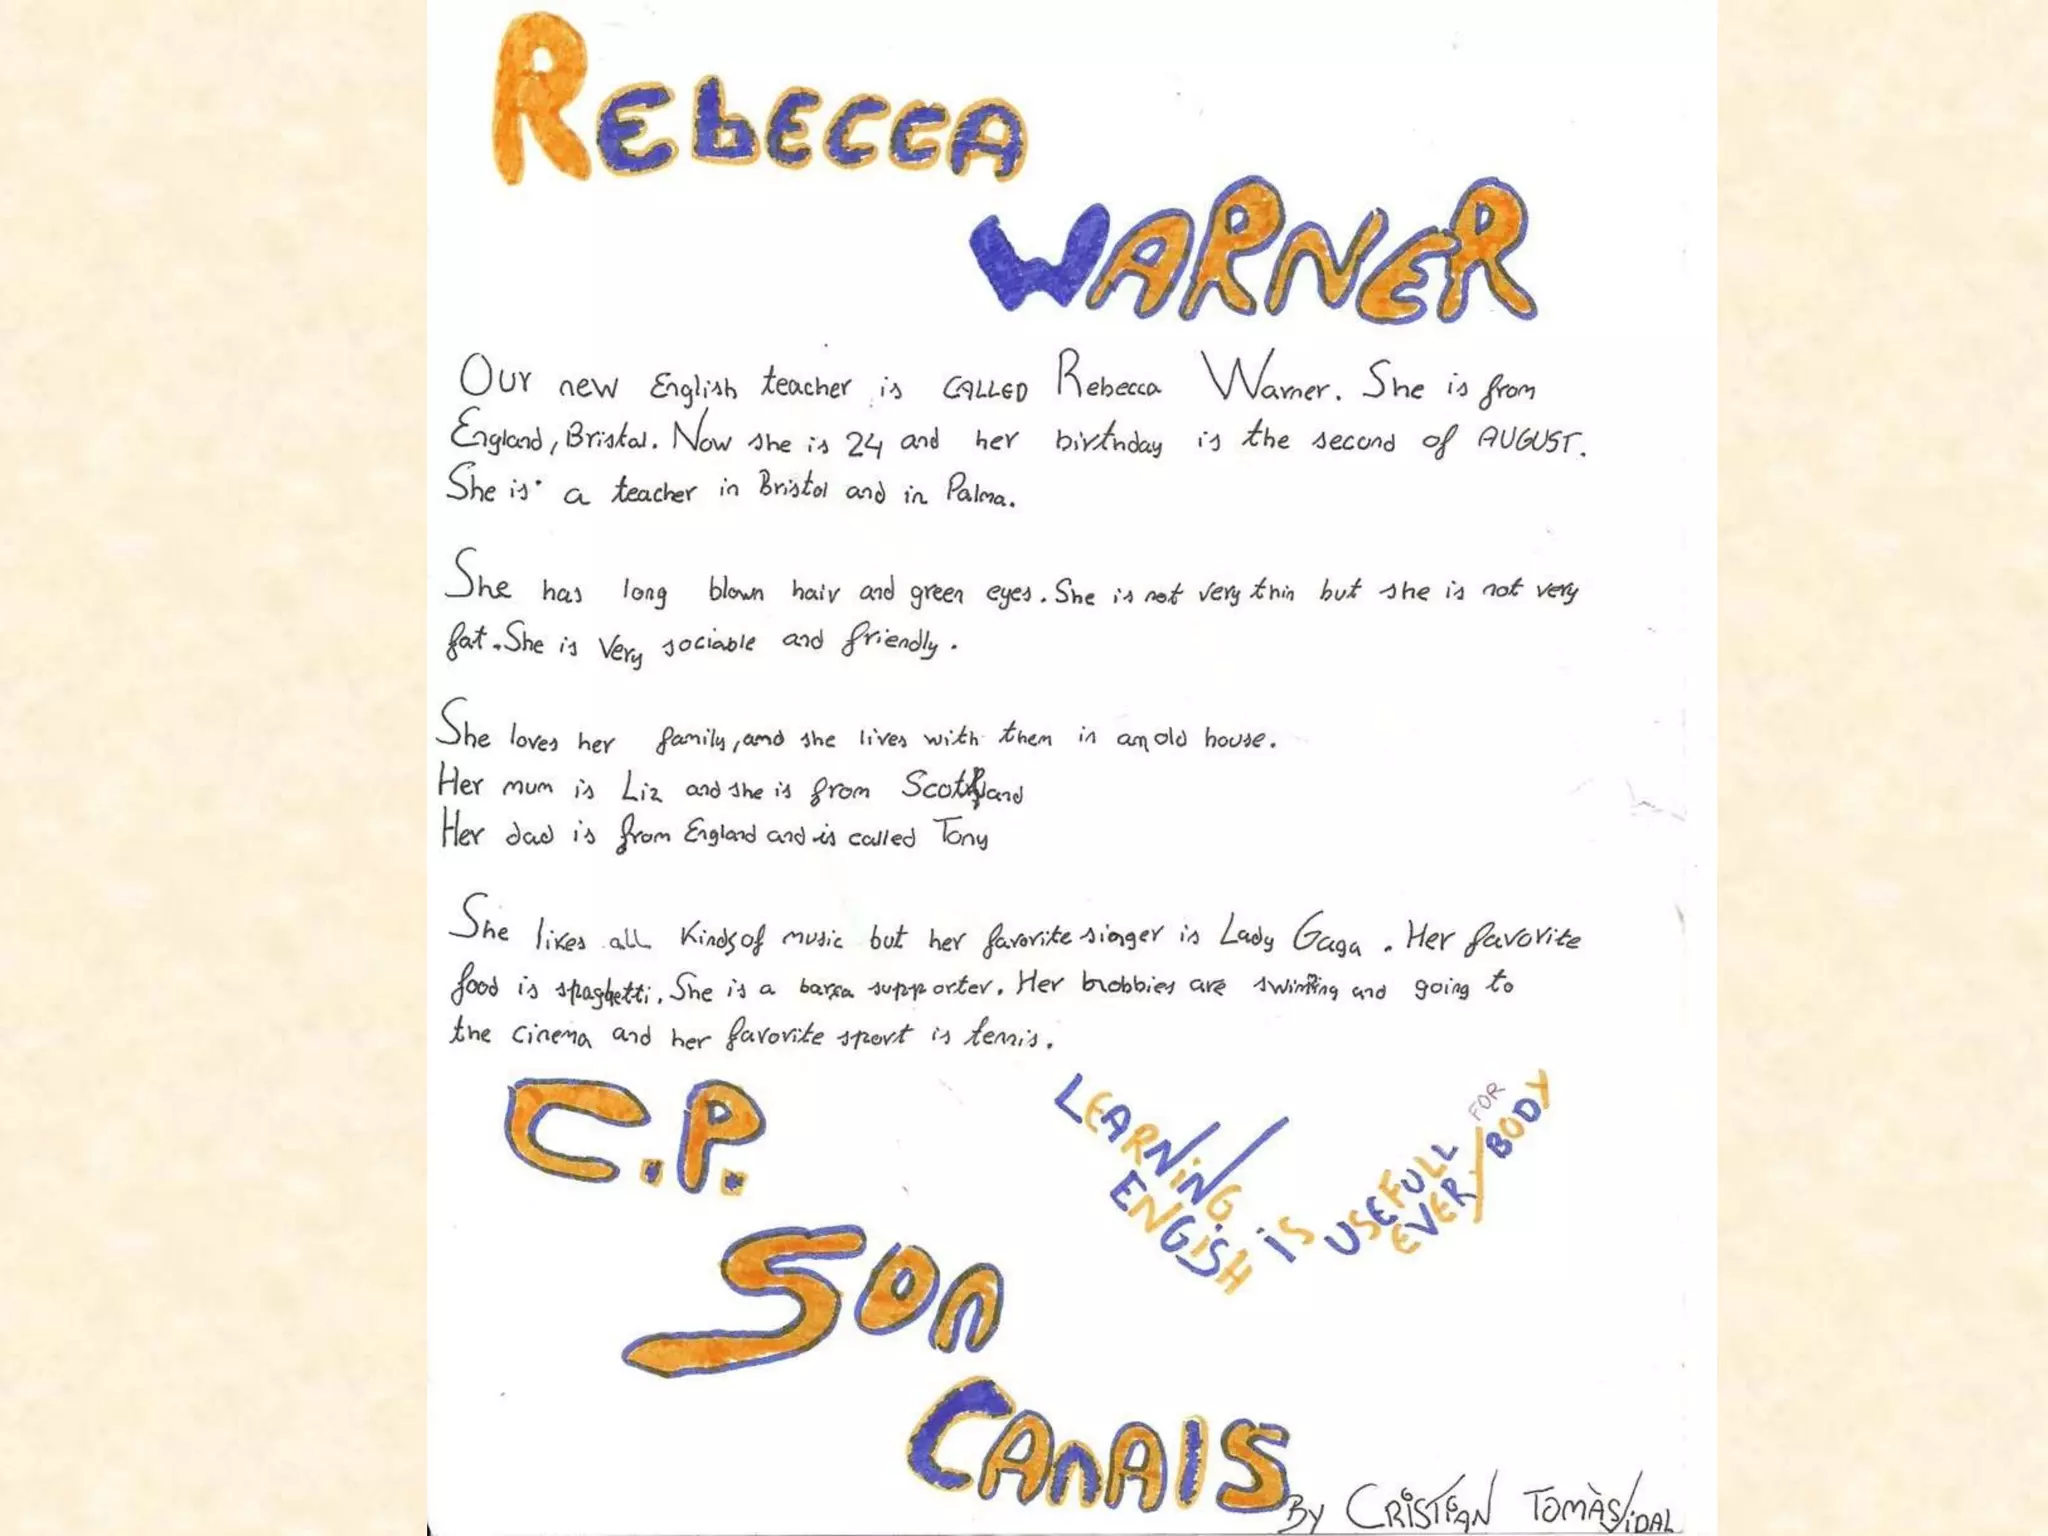 REbECCA
WARNER
Our new English teacher is CALLED Rebecca Warner. She is from
England, Bristol. Now she is 24 and her birthday is the second of AUGUST.
She is a teacher in Bristol and in Palma.
She has long blown hair and green eyes. She is not very thin but she is not very
fat. She is very sociable and friendly.
She loves her family, and she lives with them in an old house.
Her mum is Liz and she is from Scotland
Her dad is from England and is called Tony
She likes all kinds of music but her favorite singer is Lady Gaga. Her favorite
food is spaghetti. She is a barxa supporter. Her hobbies are swimming and going to
the cinema and her favorite sport is tennis.
C.P.
Son
CAnAlS
LEARNiNG
ENGiSH
iS
USEFULL
FOR
EVERYBODY
By CRiSTiAN TOMÀS ViDAL